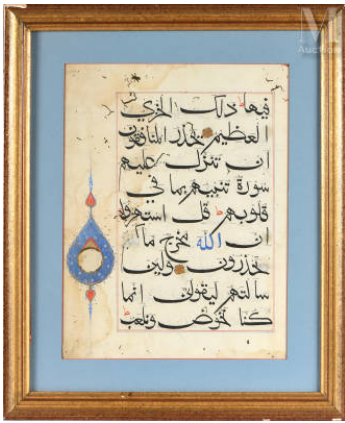 فيها ذلك الخزي
العظيم يحذر المنافقون
ان تنزل عليهم
سورة تنبيهم بما في
قلوبهم قل استهزوا
ان الله مخرج ما
تحذرون ولين
سالتهم ليقولن انما
كنا نخوض ونلعب
M
Auction